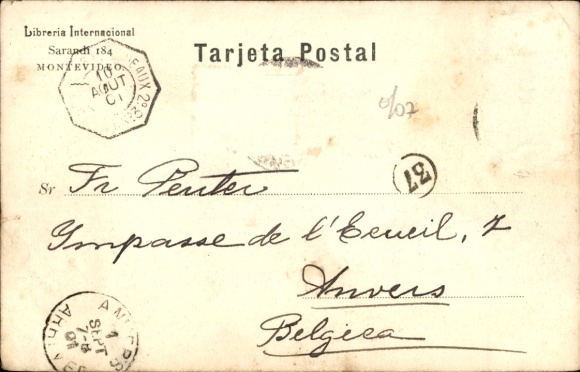 Libreria Internacional
Sarandi 184
MONTEVIDEO.
Tarjeta Postal
10
AOUT
01
0/07
37
Sr Fr Penter
Impasse de l'Ecueil, 7
Anvers
Belgica
ANVERS
1
SEPT
7-8
01